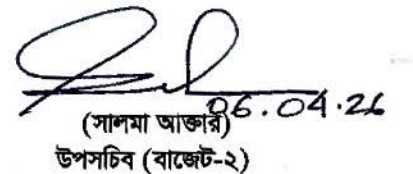 06.04.26
(সালমা আক্তার)
উপসচিব (বাজেট-২)